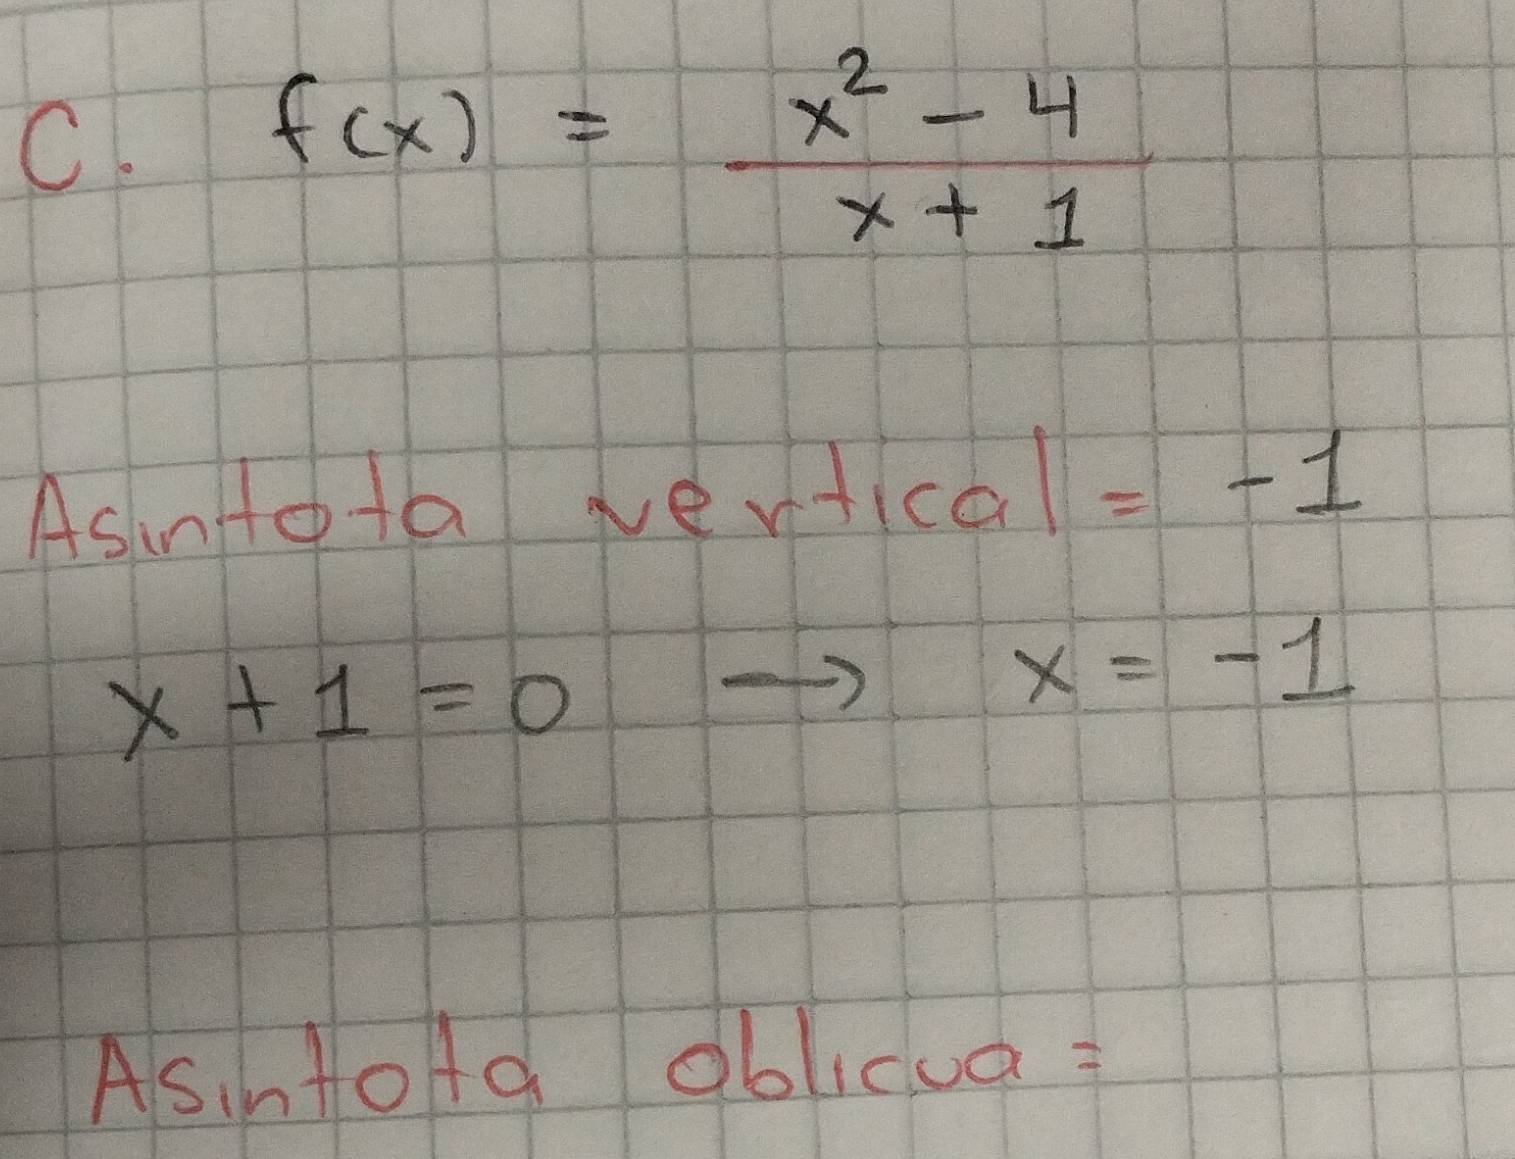 C. f(x) = x² - 4
x + 1
Asintota vertical = -1
x + 1 = 0 → x = -1
Asintota oblicua =